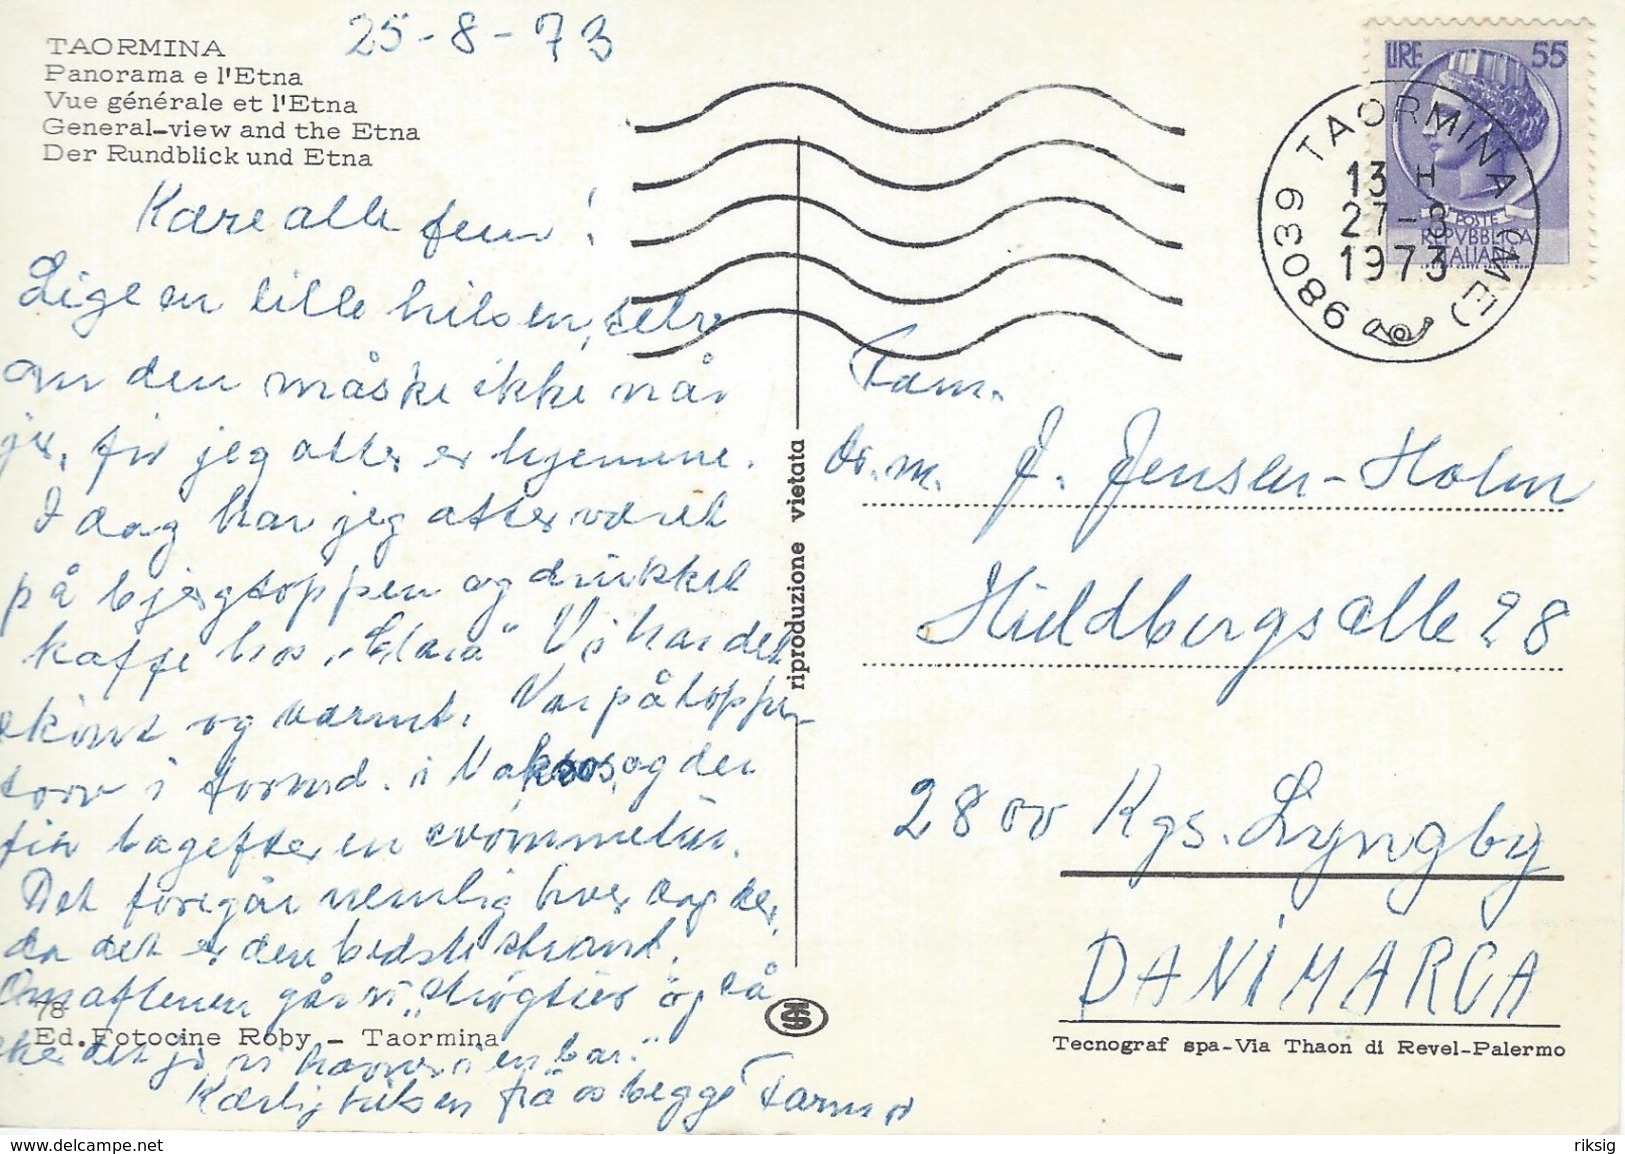 25-8-73
TAORMINA
Panorama e l'Etna
Vue générale et l'Etna
General-view and the Etna
Der Rundblick und Etna
LIRE 55
POSTE
REPVBBLICA
ITALIANA
98039 TAORMINA (ME)
13 H
27-8
1973
Kære alle fem!
Lige en lille hilsen, selv
om den måske ikke når
jer, før jeg atter er hjemme.
I dag har jeg atter været
på bjergtoppen og drukket
kaffe hos „Clara" Vi har det
skönt og varmt. Var på toppen
i Naxos, og der
bagefter en svömmetur.
Det foregår nemlig hver dag der,
da det er den bedste strand.
Om aftenen går vi „strögtur" og så
sker det jo vi havner i en bar."
Kærlig hilsen frå os begge
Fam.
J. Jensen-Holm
Hieldbergsalle 28
2800 Kgs. Lyngby
DANIMARCA
riproduzione vietata
78
Ed. Fotocine Roby - Taormina
Tecnograf spa-Via Thaon di Revel-Palermo
www.delcampe.net
riksig